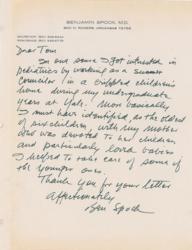 BENJAMIN SPOCK, M.D.
Dear Tom
In one sense I got interested in
pediatrics by working as a summer
counselor in a crippled children's
home during my undergraduate
years at Yale. More basically
I must have identified, as the oldest
of six children, with my mother
who was devoted to her children
and particularly loved babies
I helped to take care of some of
the younger ones.
Thank you for your letter
Affectionately
Ben Spock